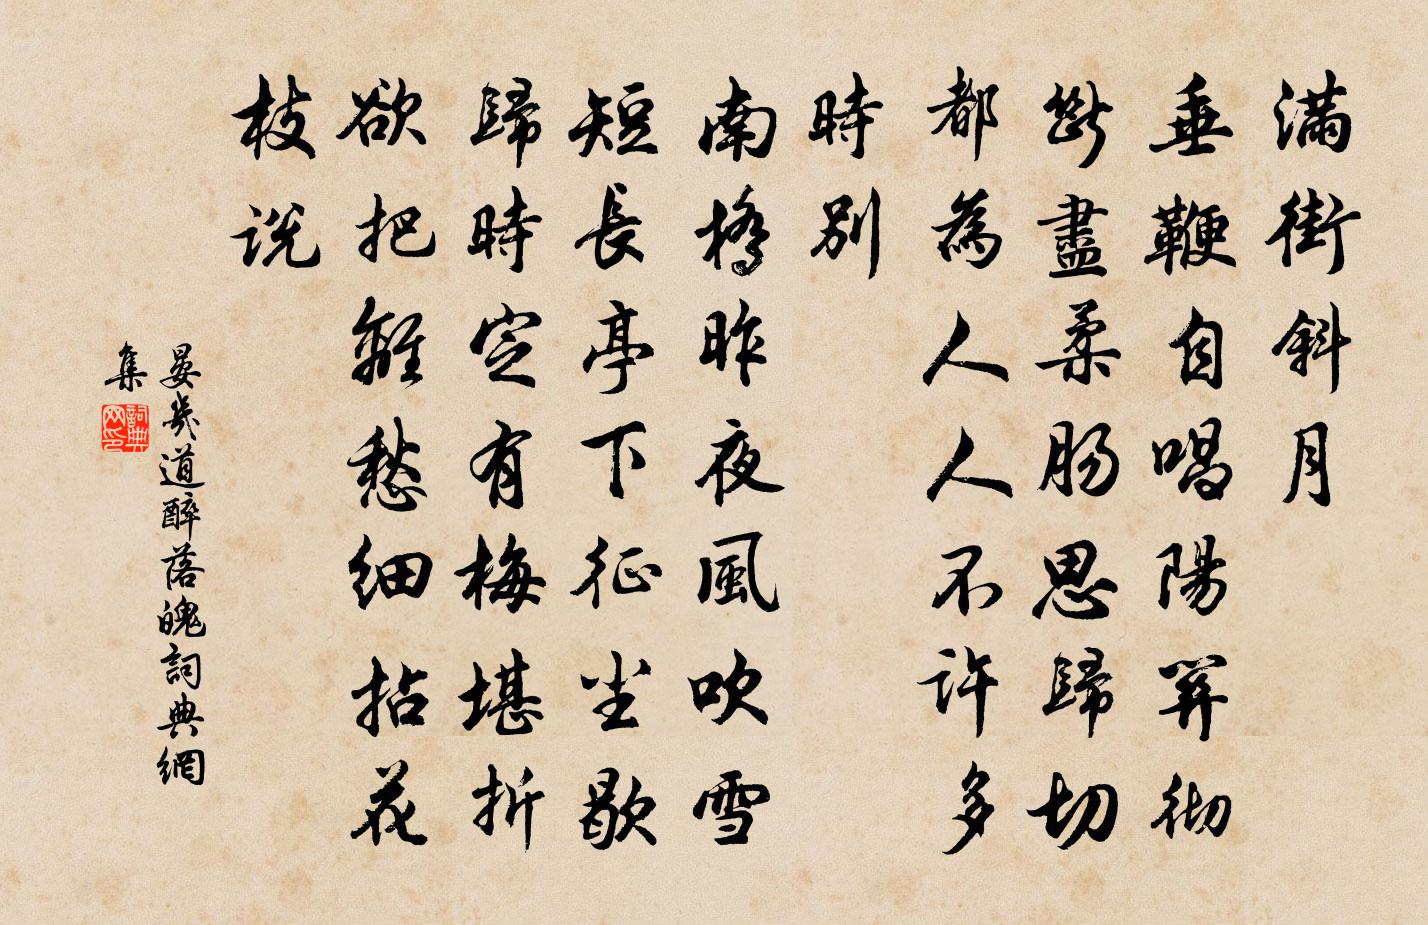 滿街斜月
垂鞭自唱陽關徹
斷盡柔腸思歸切
都為人人不許多
時別
南橋昨夜風吹雪
短長亭下征塵歇
歸時定有梅堪折
欲把離愁細拈花
枝說
晏幾道醉落魄詞典網
集
詞典网印